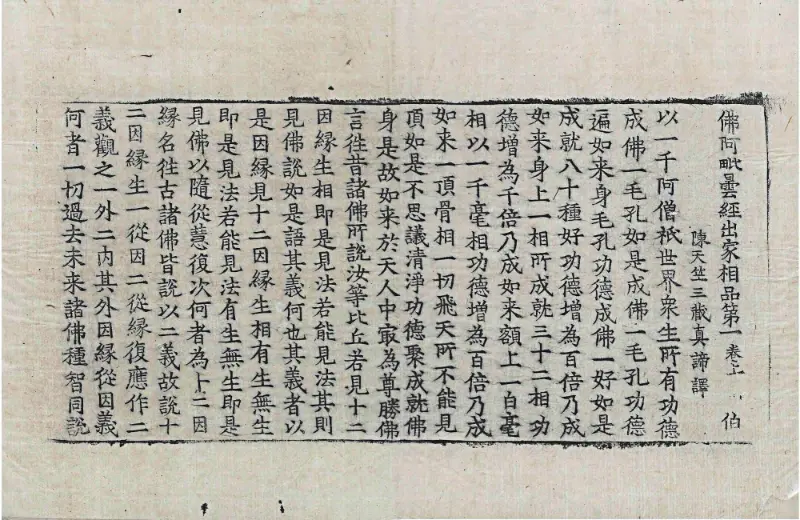 佛阿毗曇經出家相品第一 卷上 伯
陳天竺三藏真諦譯
以一千阿僧祇世界衆生所有功德
成佛一毛孔如是成佛一毛孔功德
遍如来身毛孔功德成佛一好如是
成就八十種好功德增為百倍乃成
如来身上一相所成就三十二相功
德增為千倍乃成如来額上一白毫
相以一千毫相功德增為百倍乃成
如来一頂骨相一切飛天所不能見
頂如是不思議清淨功德聚成就佛
身是故如来於天人中㝡為尊勝佛
言往昔諸佛所說汝等比丘若見十二
因緣生相即是見法若能見法其則
見佛說如是語其義何也其義者以
是因緣見十二因緣生相有生無生
即是見法若能見法有生無生即是
見佛以隨從慧復次何者為十二因
緣名往古諸佛皆說以二義故說十
二因緣生一從因二從緣復應作二
義觀之一外二内其外因緣從因義
何者一切過去未来諸佛種智同說